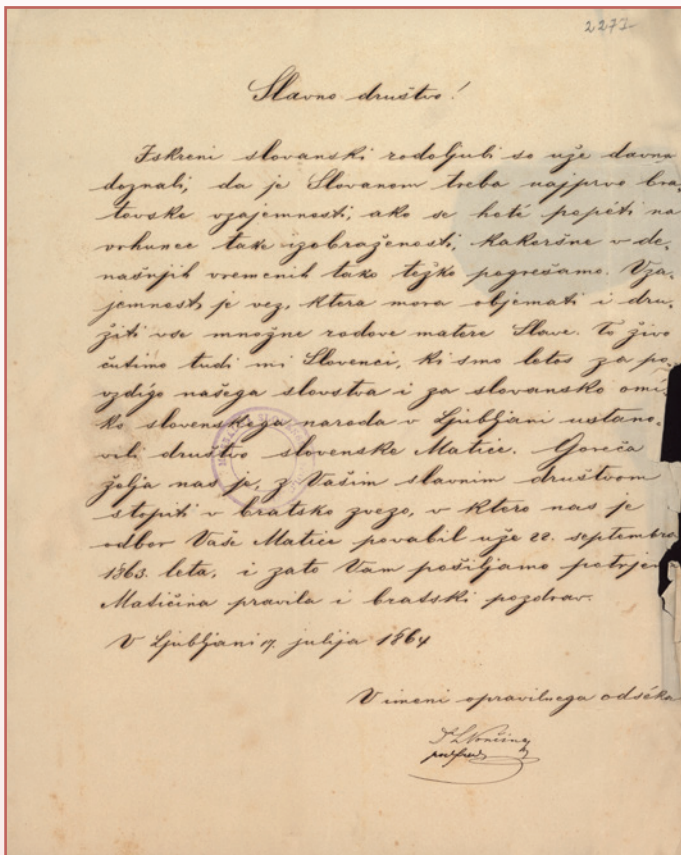 2273
Slavno društvo!
Iskreni slovanski rodoljubi so uže davno
doznali, da je Slovanom treba najprvo bra-
tovske vzajemnosti, ako se hoté popéti na
vrhunce take izobraženosti, kakoršne v de-
našnjih vremenih tako težko pogrešamo. Vza-
jemnost je vez, ktera mora objemati i dru-
žiti vse množne rodove matere Slave. To živo
čutimo tudi mi Slovenci, ki smo letos za po-
vzdigo našega slovstva i za slovansko omi-
ko slovenskega naroda v Ljubljani ustano-
vili društvo slovenske Matice. Goreča
želja nas je, z Vašim slavnim društvom
stopiti v bratsko zvezo, v ktero nas je
odbor Vaše Matice povabil uže 22. septembra
1863. leta, i zato Vam pošiljamo potrjen
Matičina pravila i bratski pozdrav.
V Ljubljani 17. julija 1864
V imeni opravilnega odséka